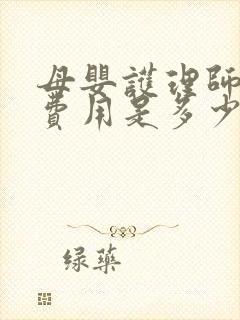 母嬰護理師
費用是多少
绿藥